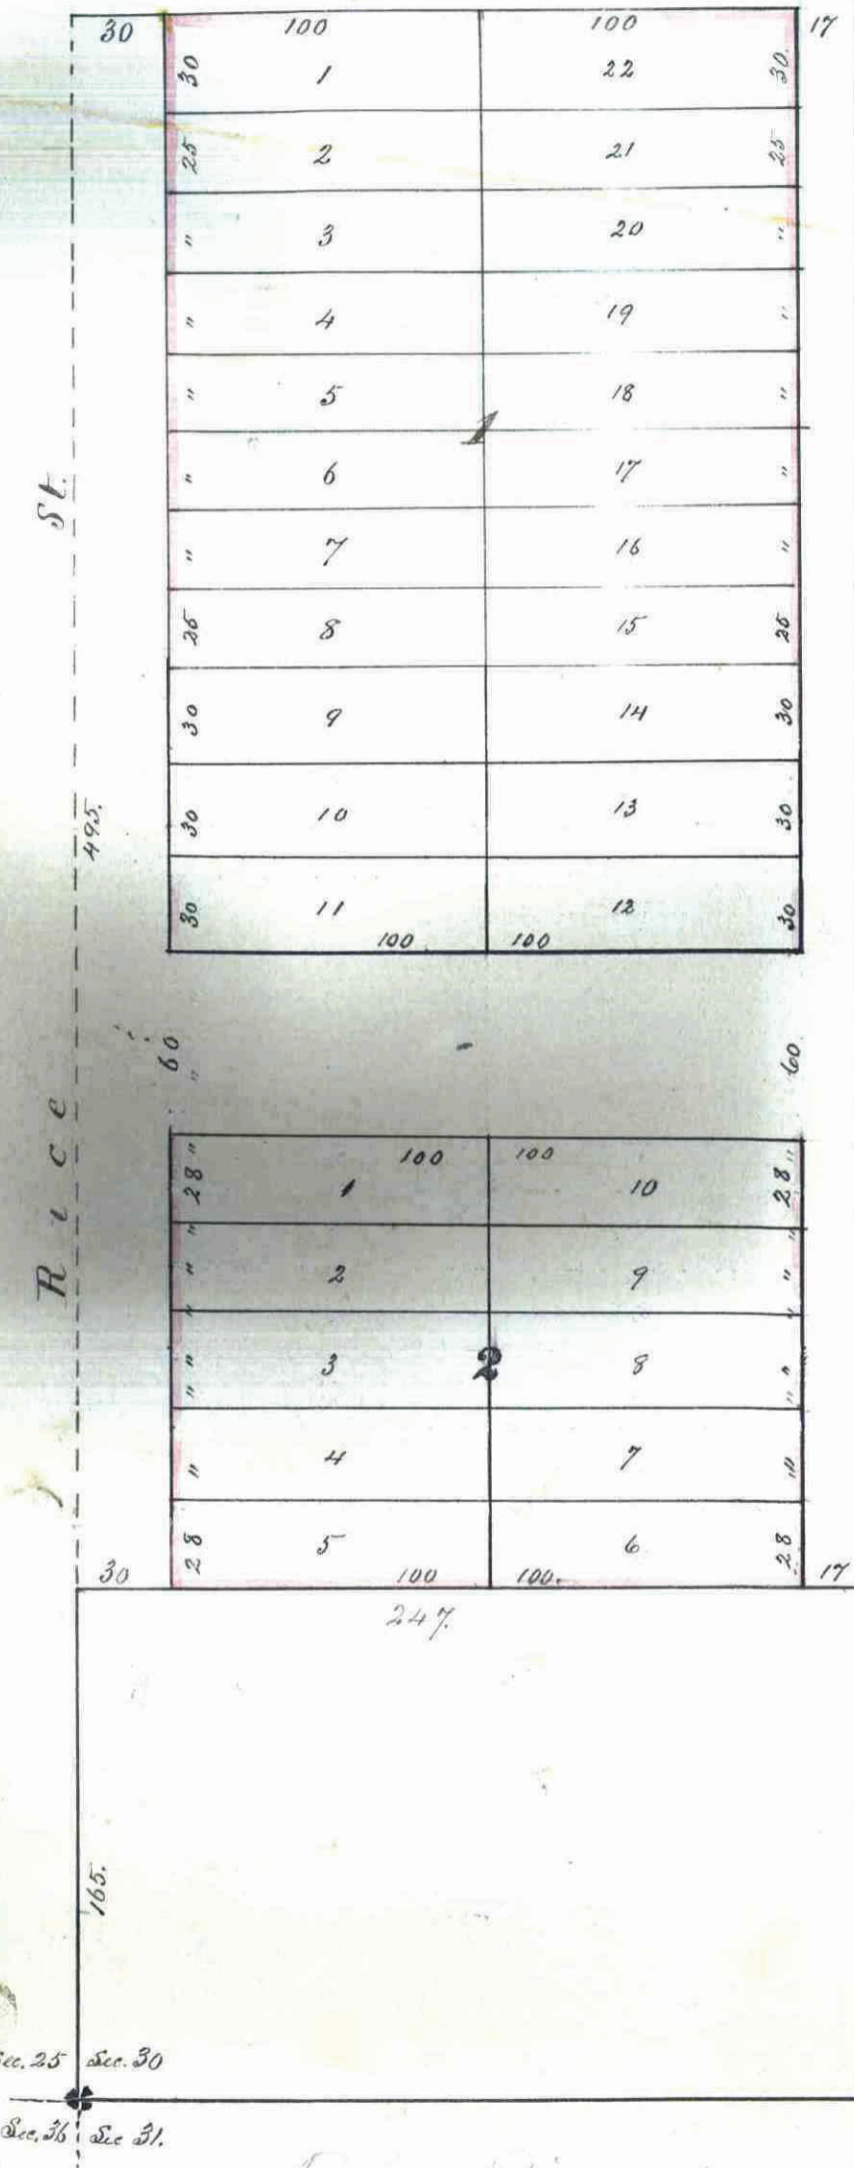 30 100 100 17
30 1 22 30.
25 2 21 25
" 3 20 "
" 4 19 "
" 5 18 "
1
" 6 17 "
St.
" 7 16 "
25 8 15 25
30 9 14 30
495.
30 10 13 30
30 11 12 30
100 100
60 60
"
Rice
100 100
28 " 1 10 28 "
" "
" 2 9 "
" "
" 3 2 8 "
" "
" 4 7 "
28 5 6 28
30 100 100. 17
247.
165.
Sec. 30
Sec. 36 Sec 31.